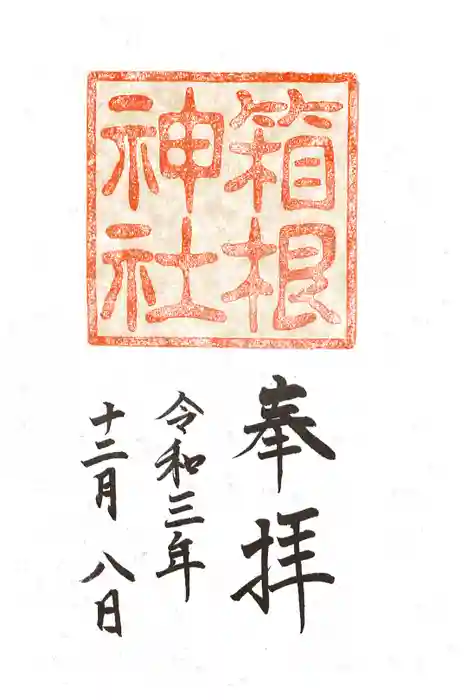 箱根
神社
奉拝
令和三年
十二月八日